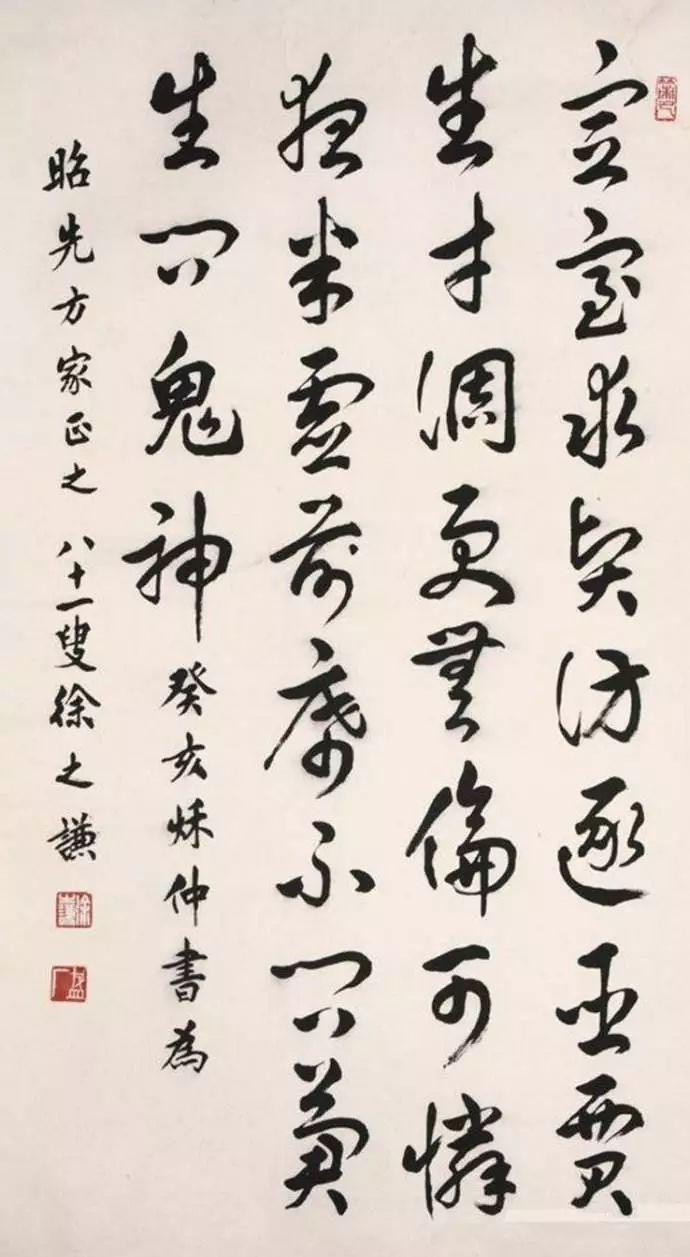 宣室求賢訪逐臣賈
生才調更無倫可憐
夜半虛前席不問蒼
生問鬼神 癸亥秌仲書為
昭先方家正之 八十一叟徐之謙